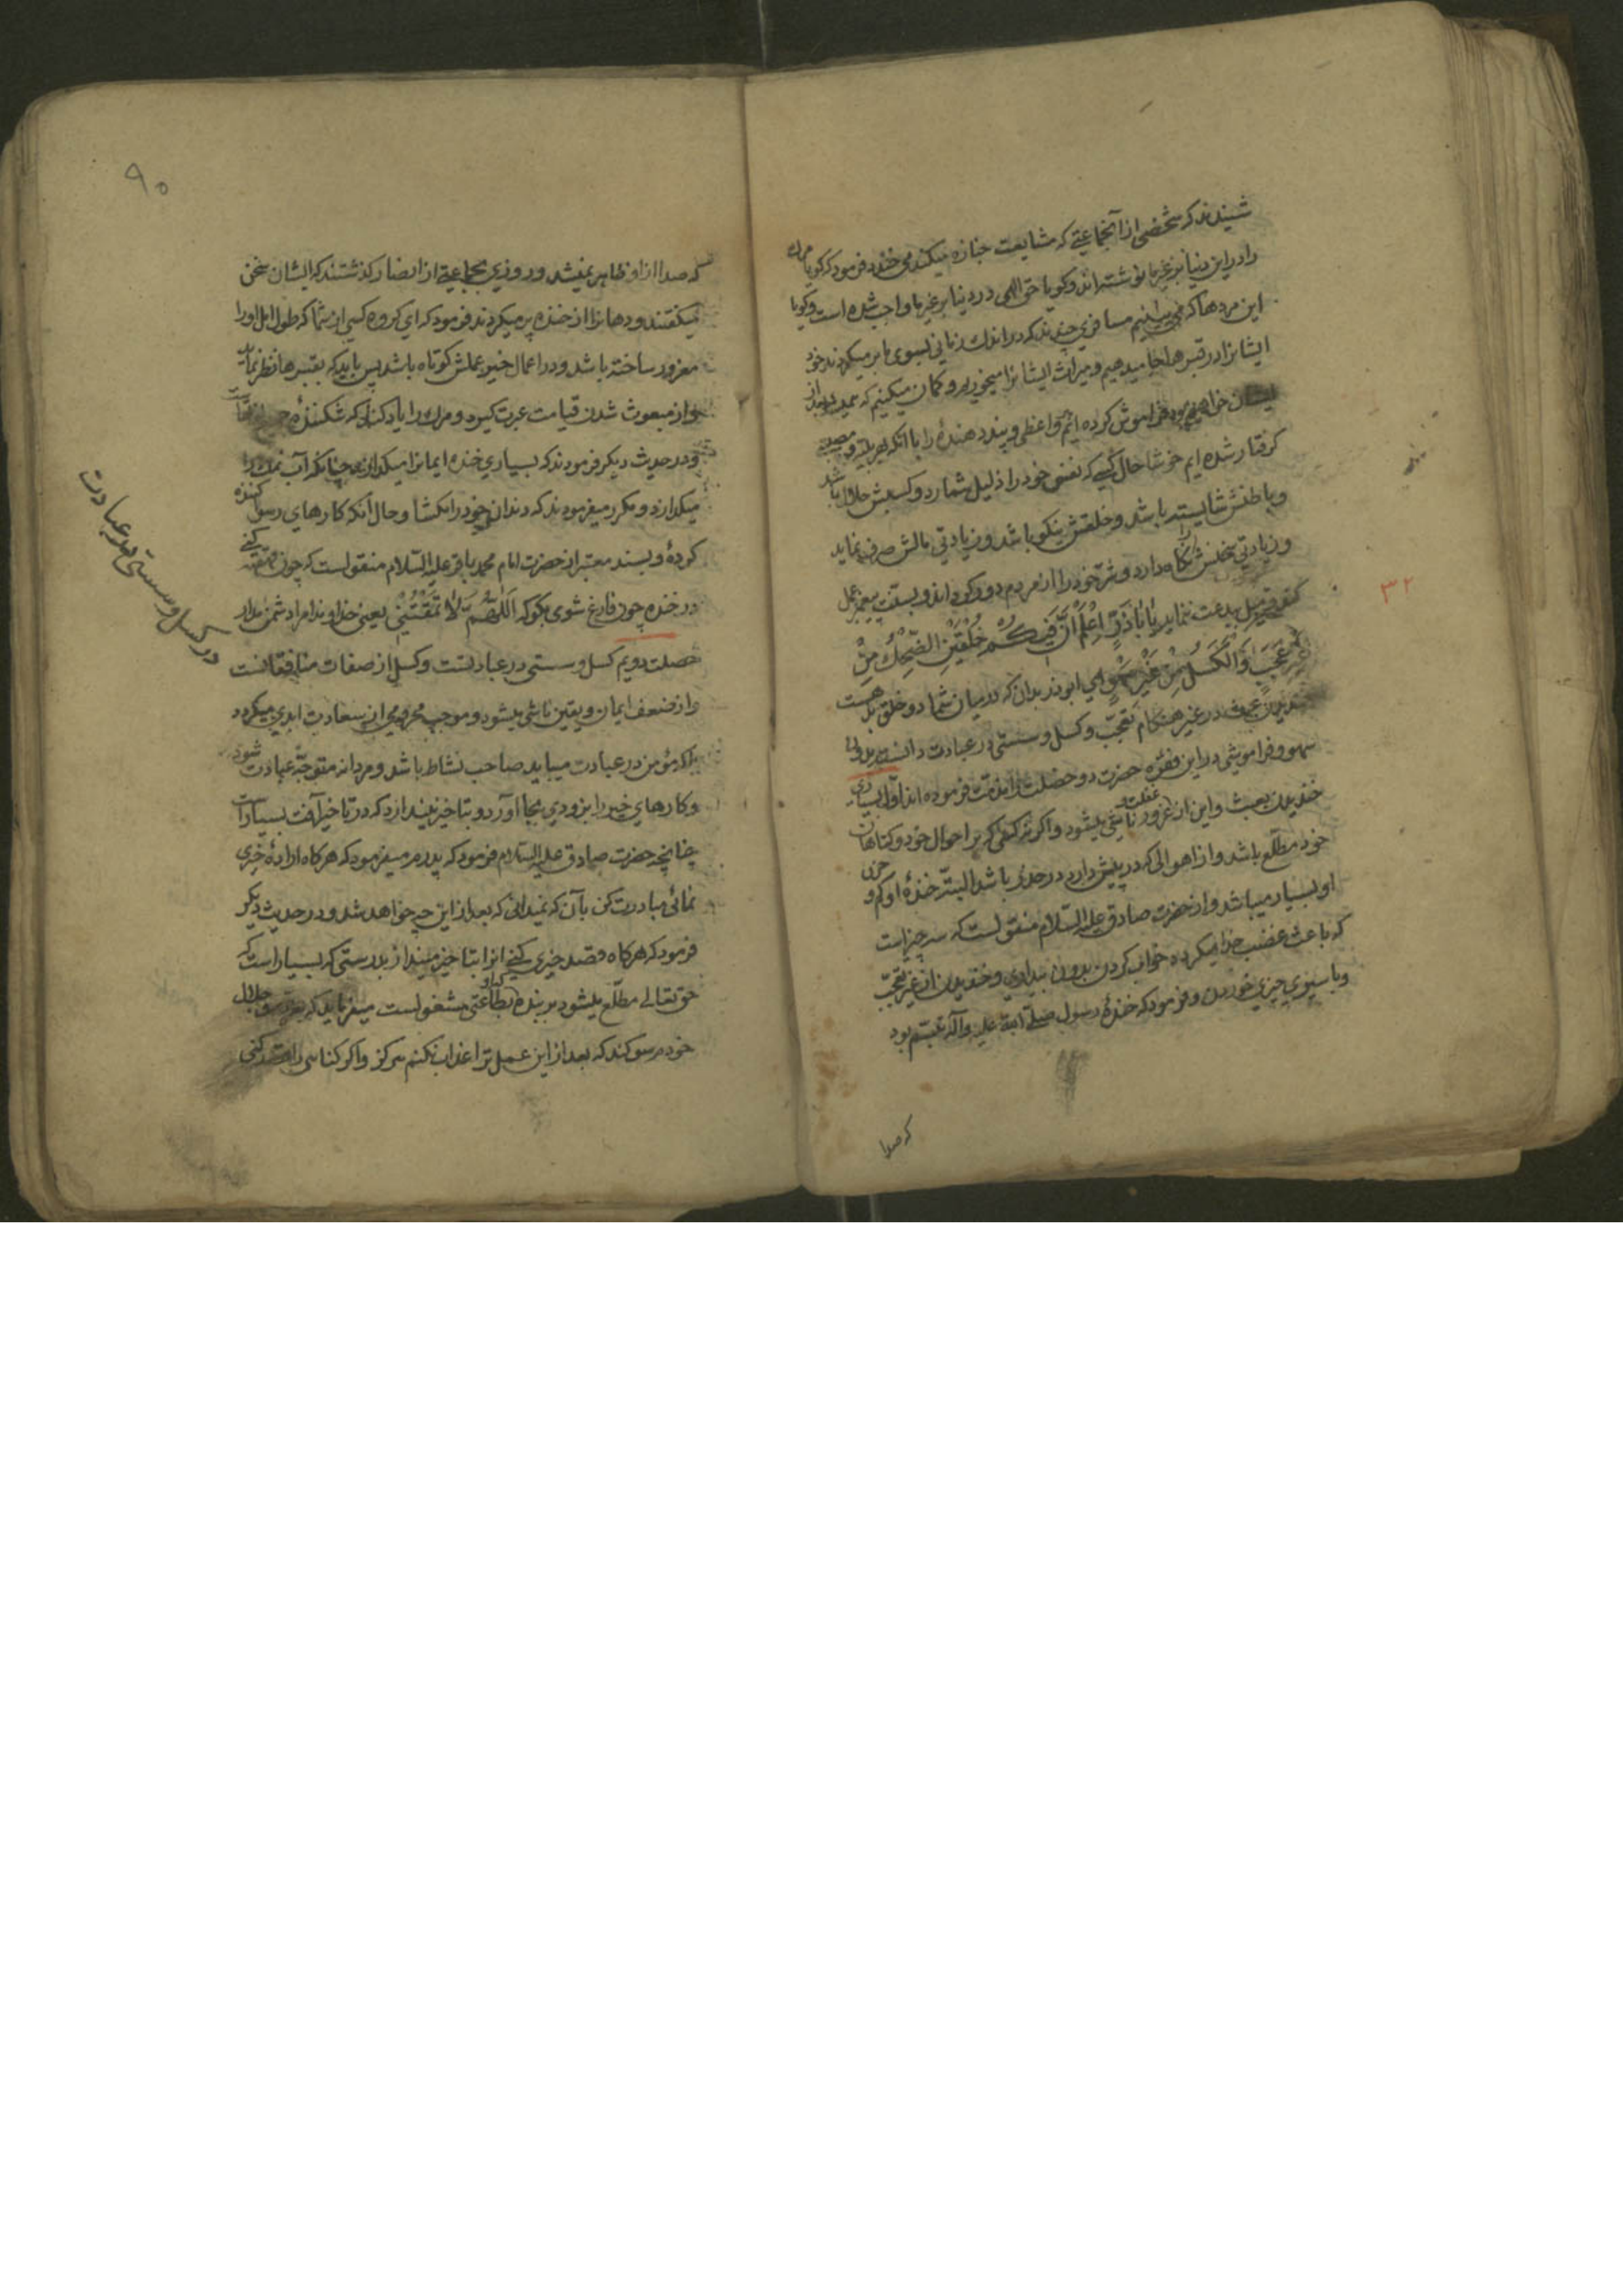 شنیدند که شخصی از آنجماعتی که مشایعت جنازه میکنند می خندد فرمود که کویا مرك
را در این دنیا بر غیر ما نوشته اند و کویا حق الهی در دنیا بر غیر ما واجب شده است و کویا
این مردها که می بینیم مسافری چندند که در اندك زمانی بسوی ما بر میکردند خود
ایشانرا در قبرها جا میدهیم و میراث ایشانرا میخوریم و کمان میکنیم که بعد از
ایشان خواهیم بود فراموش کرده ایم واعظی و پند دهندهٔ را با آنکه بهر بلیه و مصیبت
کرفتار شده ایم خوشا حال کسی که نفس خود را ذلیل شمارد و کسبش حلال باشد
و باطنش شایسته باشد و خلقش نیکو باشد و زیادتی مالش صرف نماید
و زیادتی سخنش را نکاه دارد و شر خود را از مردم دور کرداند و بسنت پیغمبر عمل
کند و میل ببدعت ننماید یَا اَبَاذَرٍّ اِعْلَمْ اَنَّ فِیکُمْ خُلْقَیْنِ الضِّحْكُ مِنْ
غَیْرِ عَجَبٍ وَالْکَسَلُ مِنْ غَیْرِ سَهْوٍ ای ابوذر بدان که در میان شما دو خلق بد هست
خندیدن عبث در غیر هنکام تعجب و کسل و سستی در عبادت دانسته بدون
سهو و فراموشی در این فقره حضرت دو خصلت را مذمت فرموده اند اول بسیاری
خندیدن بعبث و این از غرور و غفلت ناشی میشود و اکر نه کسی که بر احوال خود و کناهان
خود مطلع باشد و از اهوالی که در پیش دارد در حذر باشد البته خندهٔ او کم و حزن
او بسیار میباشد و از حضرت صادق علیه السلام منقولست که سه چیز است
که باعث غضب خدا میکردد خواب کردن بدون بیداری و خندیدن از غیر تعجب
و با سیری چیزی خوردن و فرمود که خندهٔ رسول صلی الله علیه وآله تبسم بود
که صدا
۳۲
۹۰
که صدا از او ظاهر نمیشد و روزی بجماعتی از انصار کذشتند که ایشان سخن
میکفتند و دهانرا از خنده پر میکردند فرمود که ای کروه کسی از شما که طول امل او را
مغرور ساخته باشد و در اعمال خیر عملش کوتاه باشد پس باید که بقبرها نظر نماید
و از مبعوث شدن قیامت عبرت کیرد و مرك را یاد کند که شکنندهٔ لذتهاست
و در حدیث دیکر فرمودند که بسیاری خنده ایمانرا میکدازد چنانکه آب نمك را
میکدازد و مکرر میفرمودند که دندان خود را مکشا و حال آنکه کارهای رسوا کننده
کردهٔ و بسند معتبر از حضرت امام محمد باقر علیه السلام منقولست که چون قهقهه کنی
در خنده چون فارغ شوی بکو که اَللّٰهُمَّ لَا تَمْقُتْنِی یعنی خداوندا مرا دشمن مدار
خصلت دویم کسل و سستی در عبادتست و کسل از صفات منافقانست
و از ضعف ایمان و یقین ناشی میشود و موجب محرومی از سعادت ابدی میکردد
بلکه مؤمن در عبادت میباید صاحب نشاط باشد و مردانه متوجه عبادت شود
و کارهای خیر را بزودی بجا آورد و بتاخیر نیندازد که در تاخیر آفت بسیار است
چنانچه حضرت صادق علیه السلام فرمود که پدرم میفرمود که هرکاه ارادهٔ خیری
نمائی مبادرت کن بآن که نمیدانی که بعد از این چه خواهد شد و در حدیث دیکر
فرمود که هرکاه قصد خیری کنی آنرا بتاخیر مینداز بدرستی که بسیار است که
حق تعالی مطلع میشود بر بنده که او بطاعتی مشغولست میفرماید که بعزت و جلال
خودم سوکند که بعد از این عمل ترا عذاب نکنم هرکز و اکر کناهی را قصد کنی
در کسل و سستی در عبادت